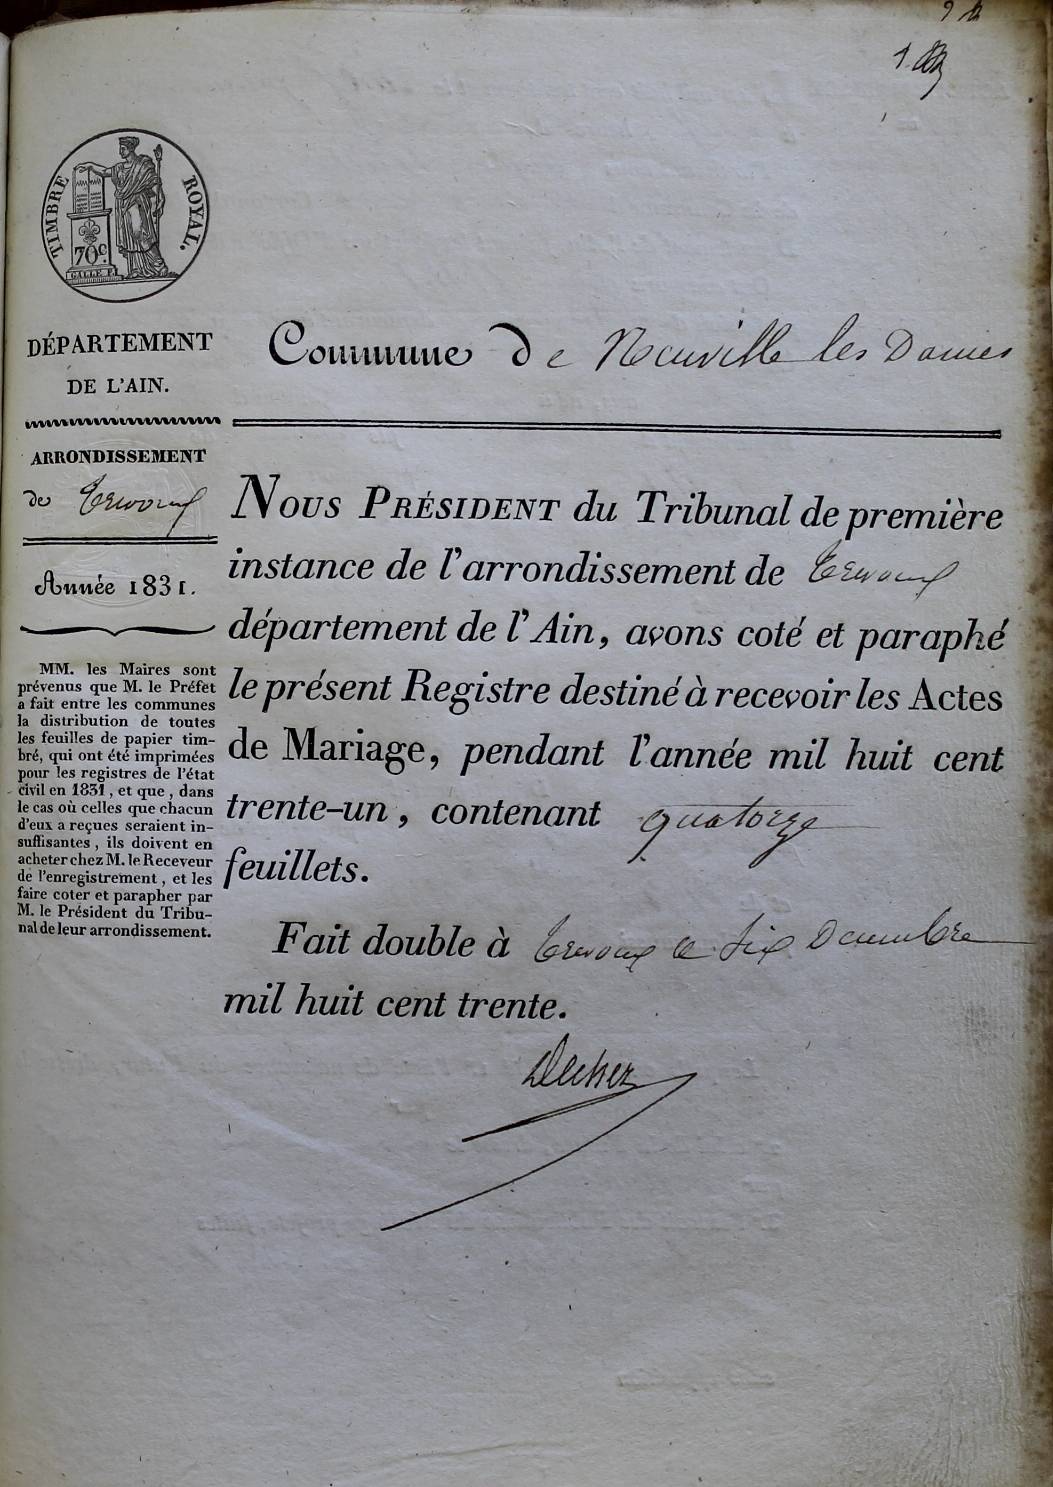 TIMBRE ROYAL.
70c.
DÉPARTEMENT
DE L'AIN.
ARRONDISSEMENT
de Trévoux
Année 1831.
MM. les Maires sont
prévenus que M. le Préfet
a fait entre les communes
la distribution de toutes
les feuilles de papier tim-
bré, qui ont été imprimées
pour les registres de l'état
civil en 1831, et que, dans
le cas où celles que chacun
d'eux a reçues seraient in-
suffisantes, ils doivent en
acheter chez M. le Receveur
de l'enregistrement, et les
faire coter et parapher par
M. le Président du Tribu-
nal de leur arrondissement.
Commune de Neuville les Dames
NOUS PRÉSIDENT du Tribunal de première
instance de l'arrondissement de Trévoux
département de l'Ain, avons coté et paraphé
le présent Registre destiné à recevoir les Actes
de Mariage, pendant l'année mil huit cent
trente-un, contenant quatorze
feuillets.
Fait double à Trevoux le Six Decembre
mil huit cent trente.